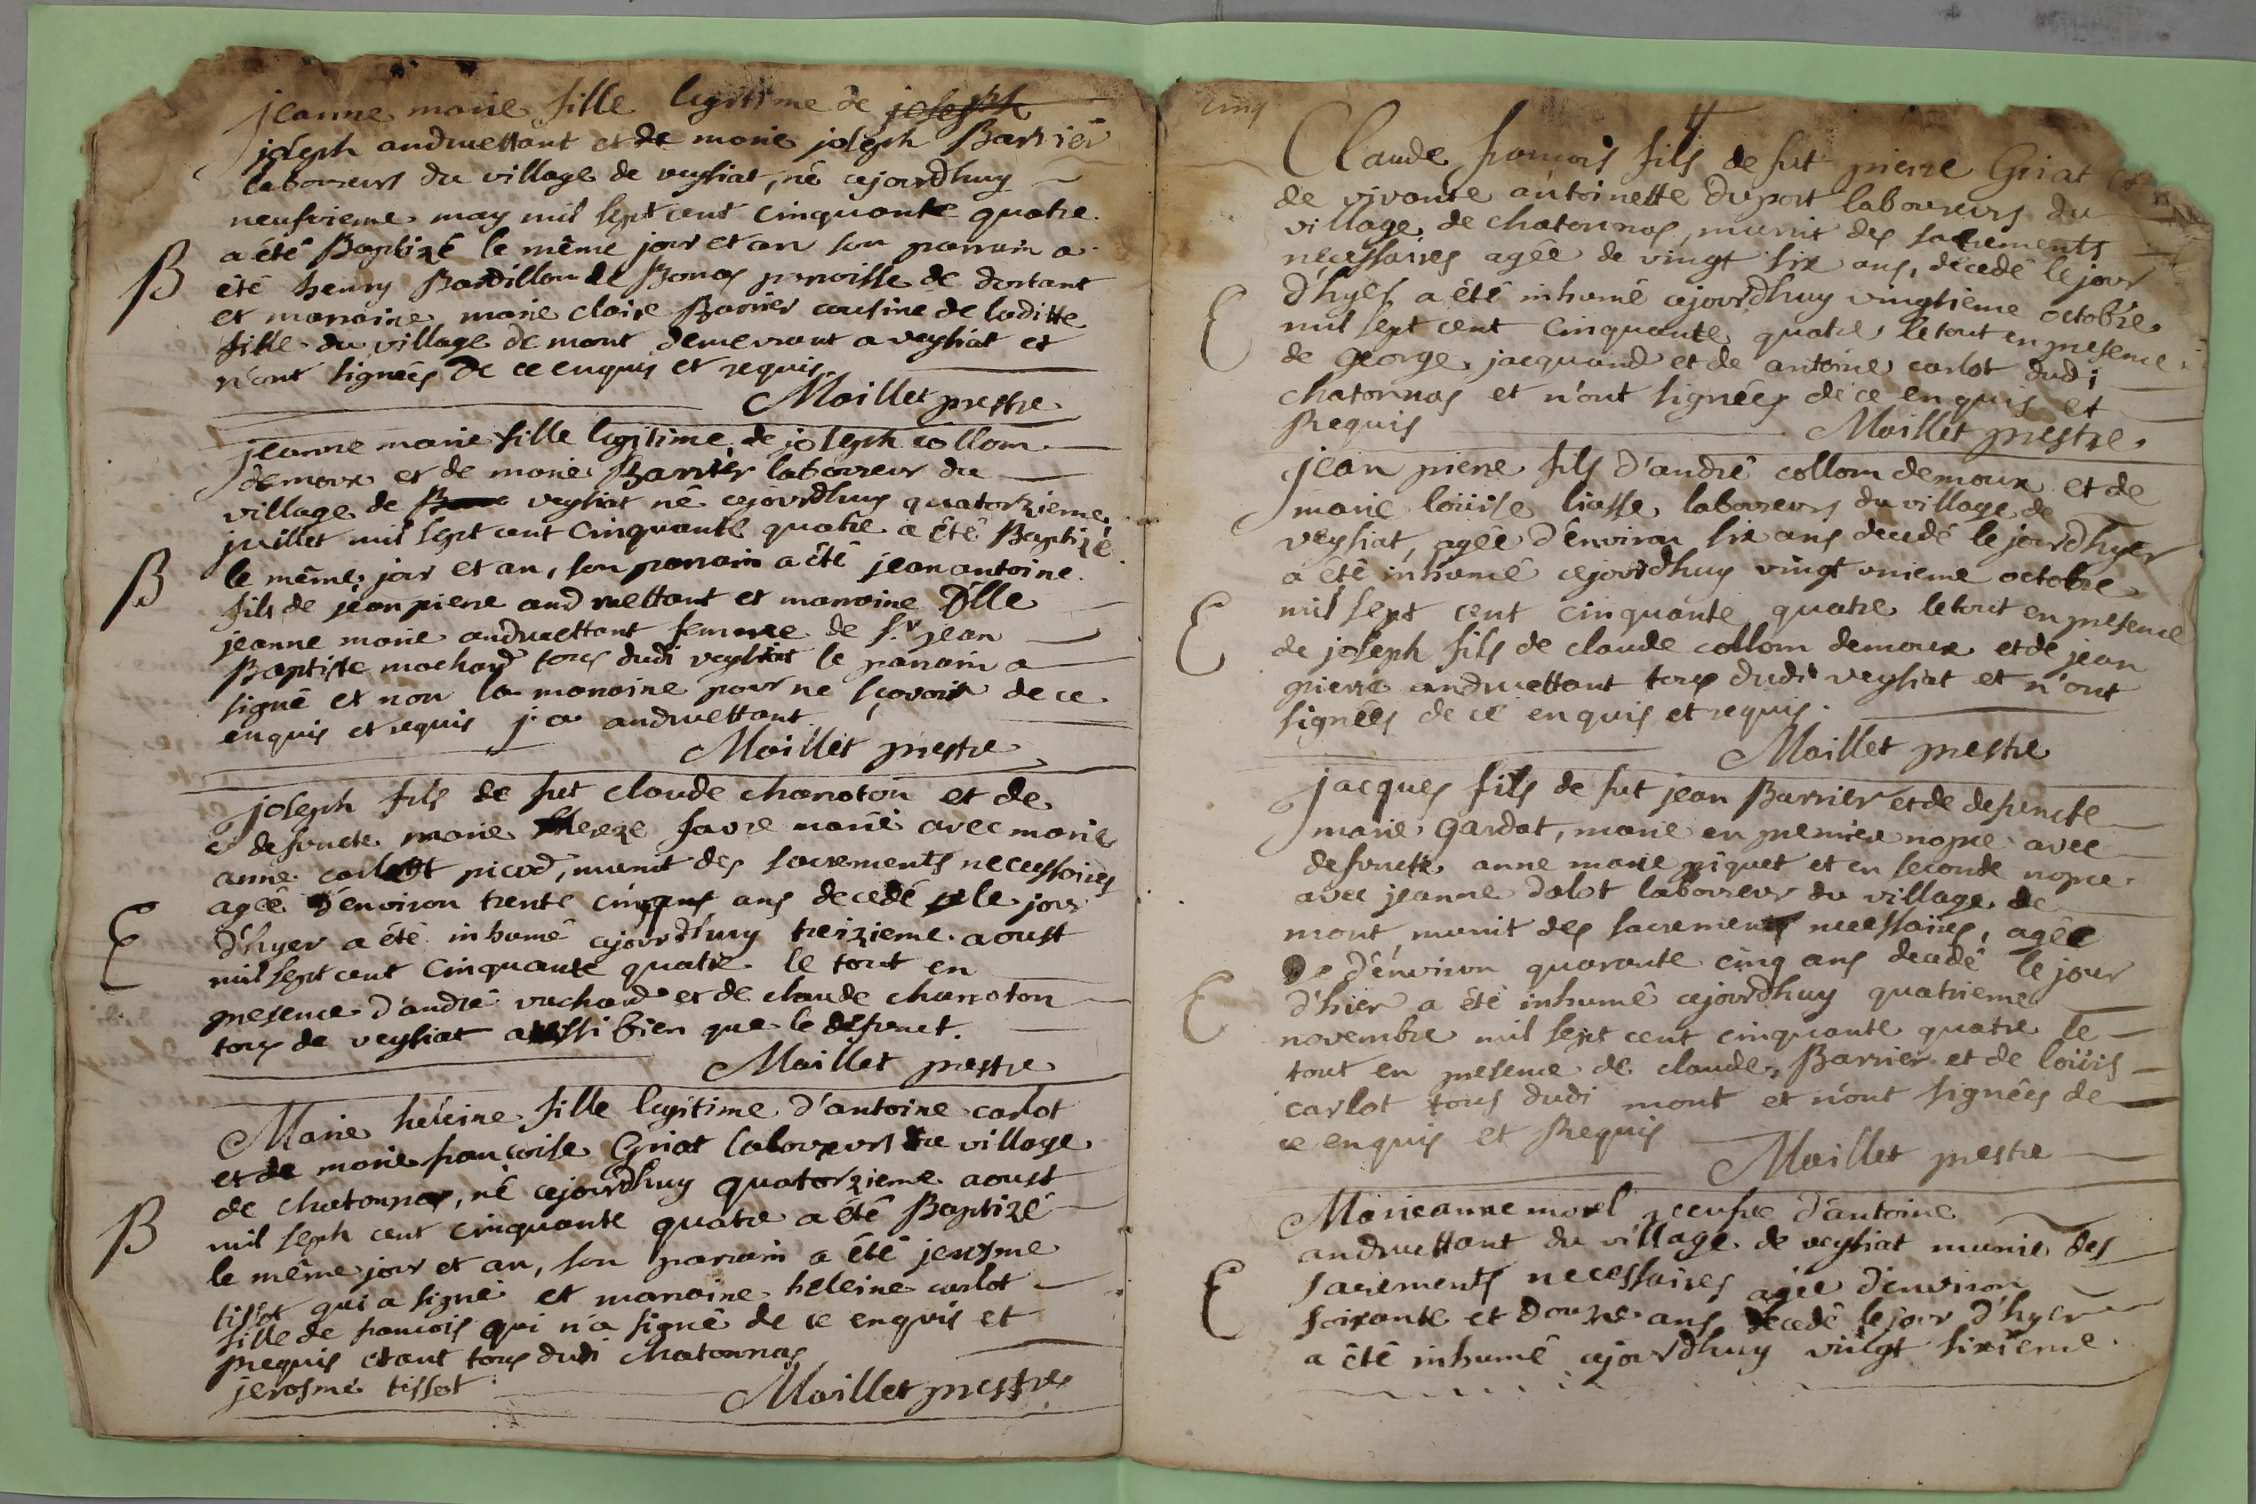 jeanne marie fille legitime de joseph
joseph andruettant et de marie joseph Barrier
laboureurs du village de veysiat, né cejourdhuy
neufvieme may mil sept cent cinquante quatre
B
a été Baptizé le même jour et an son parrain a
été henry Bardillon de Bonas paroisse de dortant
et marraine marie claire Barrier cousine de laditte
fille du village de mont demeurant a veysiat et
n'ont signées de ce enquis et requis
Maillet prestre
jeanne marie fille legitime de joseph collom
demoux et de marie Barrier laboureur du
village de veysiat né cejourdhuy quatorzieme
juillet mil sept cent cinquante quatre a été Baptizé
B
le même jour et an, son parrain a été jean antoine
fils de jean pierre andruettant et marraine Dlle
jeanne marie andruettant femme de Sr jean
Baptiste mochard tous dudi veysiat le parrain a
signé et non la marraine pour ne sçavoir de ce
enquis et requis j. a. andruettant
Maillet prestre
joseph fils de fut claude chanoton et de
defuncte marie thereze favre marié avec marie
anne carlot picod, munit des sacrements necessaires
agée d'environ trente cinq ans decedé le jour
E
d'hyer a été inhumé cejourdhuy treizieme aoust
mil sept cent cinquante quatre le tout en
presence d'andré vuchard et de claude chanoton
tous de veysiat aussi bien que le defunct
Maillet prestre
Marie heleine fille legitime d'antoine carlot
et de marie françoise Griat laboureurs du village
de chatonnas, né cejourdhuy quatorzieme aoust
B
mil seph cent cinquante quatre a été Baptizé
le même jour et an, son parrain a été jerosme
tissot qui a signé et marraine heleine carlot
fille de francois qui n'a signé de ce enquis et
requis etant tous dudi chatonnas
jerosme tissot
Maillet prestre
cinq
Claude francois fils de fut pierre Griat et
de vivante antoinette duport laboureurs du
village de chatonnas, munit des sacrements
necessaires agée de vingt six ans, decedé le jour
E
d'hyer a été inhumé cejourdhuy vingtieme octobre
mil sept cent cinquante quatre le tout en presence
de George jacquand et de antoine carlot dudi
chatonnas et n'ont signées de ce enquis et
Requis
Maillet prestre
jean pierre fils d'andré collom demoux et de
marie loüise liasse laboureurs du village de
veysiat, agée d'environ six ans decedé le jour d'hyer
a été inhumé cejourdhuy vingt unieme octobre
E
mil sept cent cinquante quatre le tout en presence
de joseph fils de claude collom demoux et de jean
pierre andruettant tous dudi veysiat et n'ont
signées de ce enquis et requis
Maillet prestre
jacques fils de fut jean Barrier et de defuncte
marie Gardat, marié en premiere nopce avec
defuncte anne marie piquet et en seconde nopce
avec jeanne dalot laboureur du village de
mont, munit des sacrements necessaires, agée
d'environ quarante cinq ans decedé le jour
E
d'hier a été inhumé cejourdhuy quatrieme
novembre mil sept cent cinquante quatre le
tout en presence de claude Barrier et de loüis
carlot tous dudi mont et n'ont signées de
ce enquis et Requis
Maillet prestre
Marieanne morel veufve d'antoine
andruettant du village de veysiat munie des
sacrements necessaires agée d'environ
E
soixante et douze ans decedé le jour d'hyer
a été inhumé cejourdhuy vingt sixieme